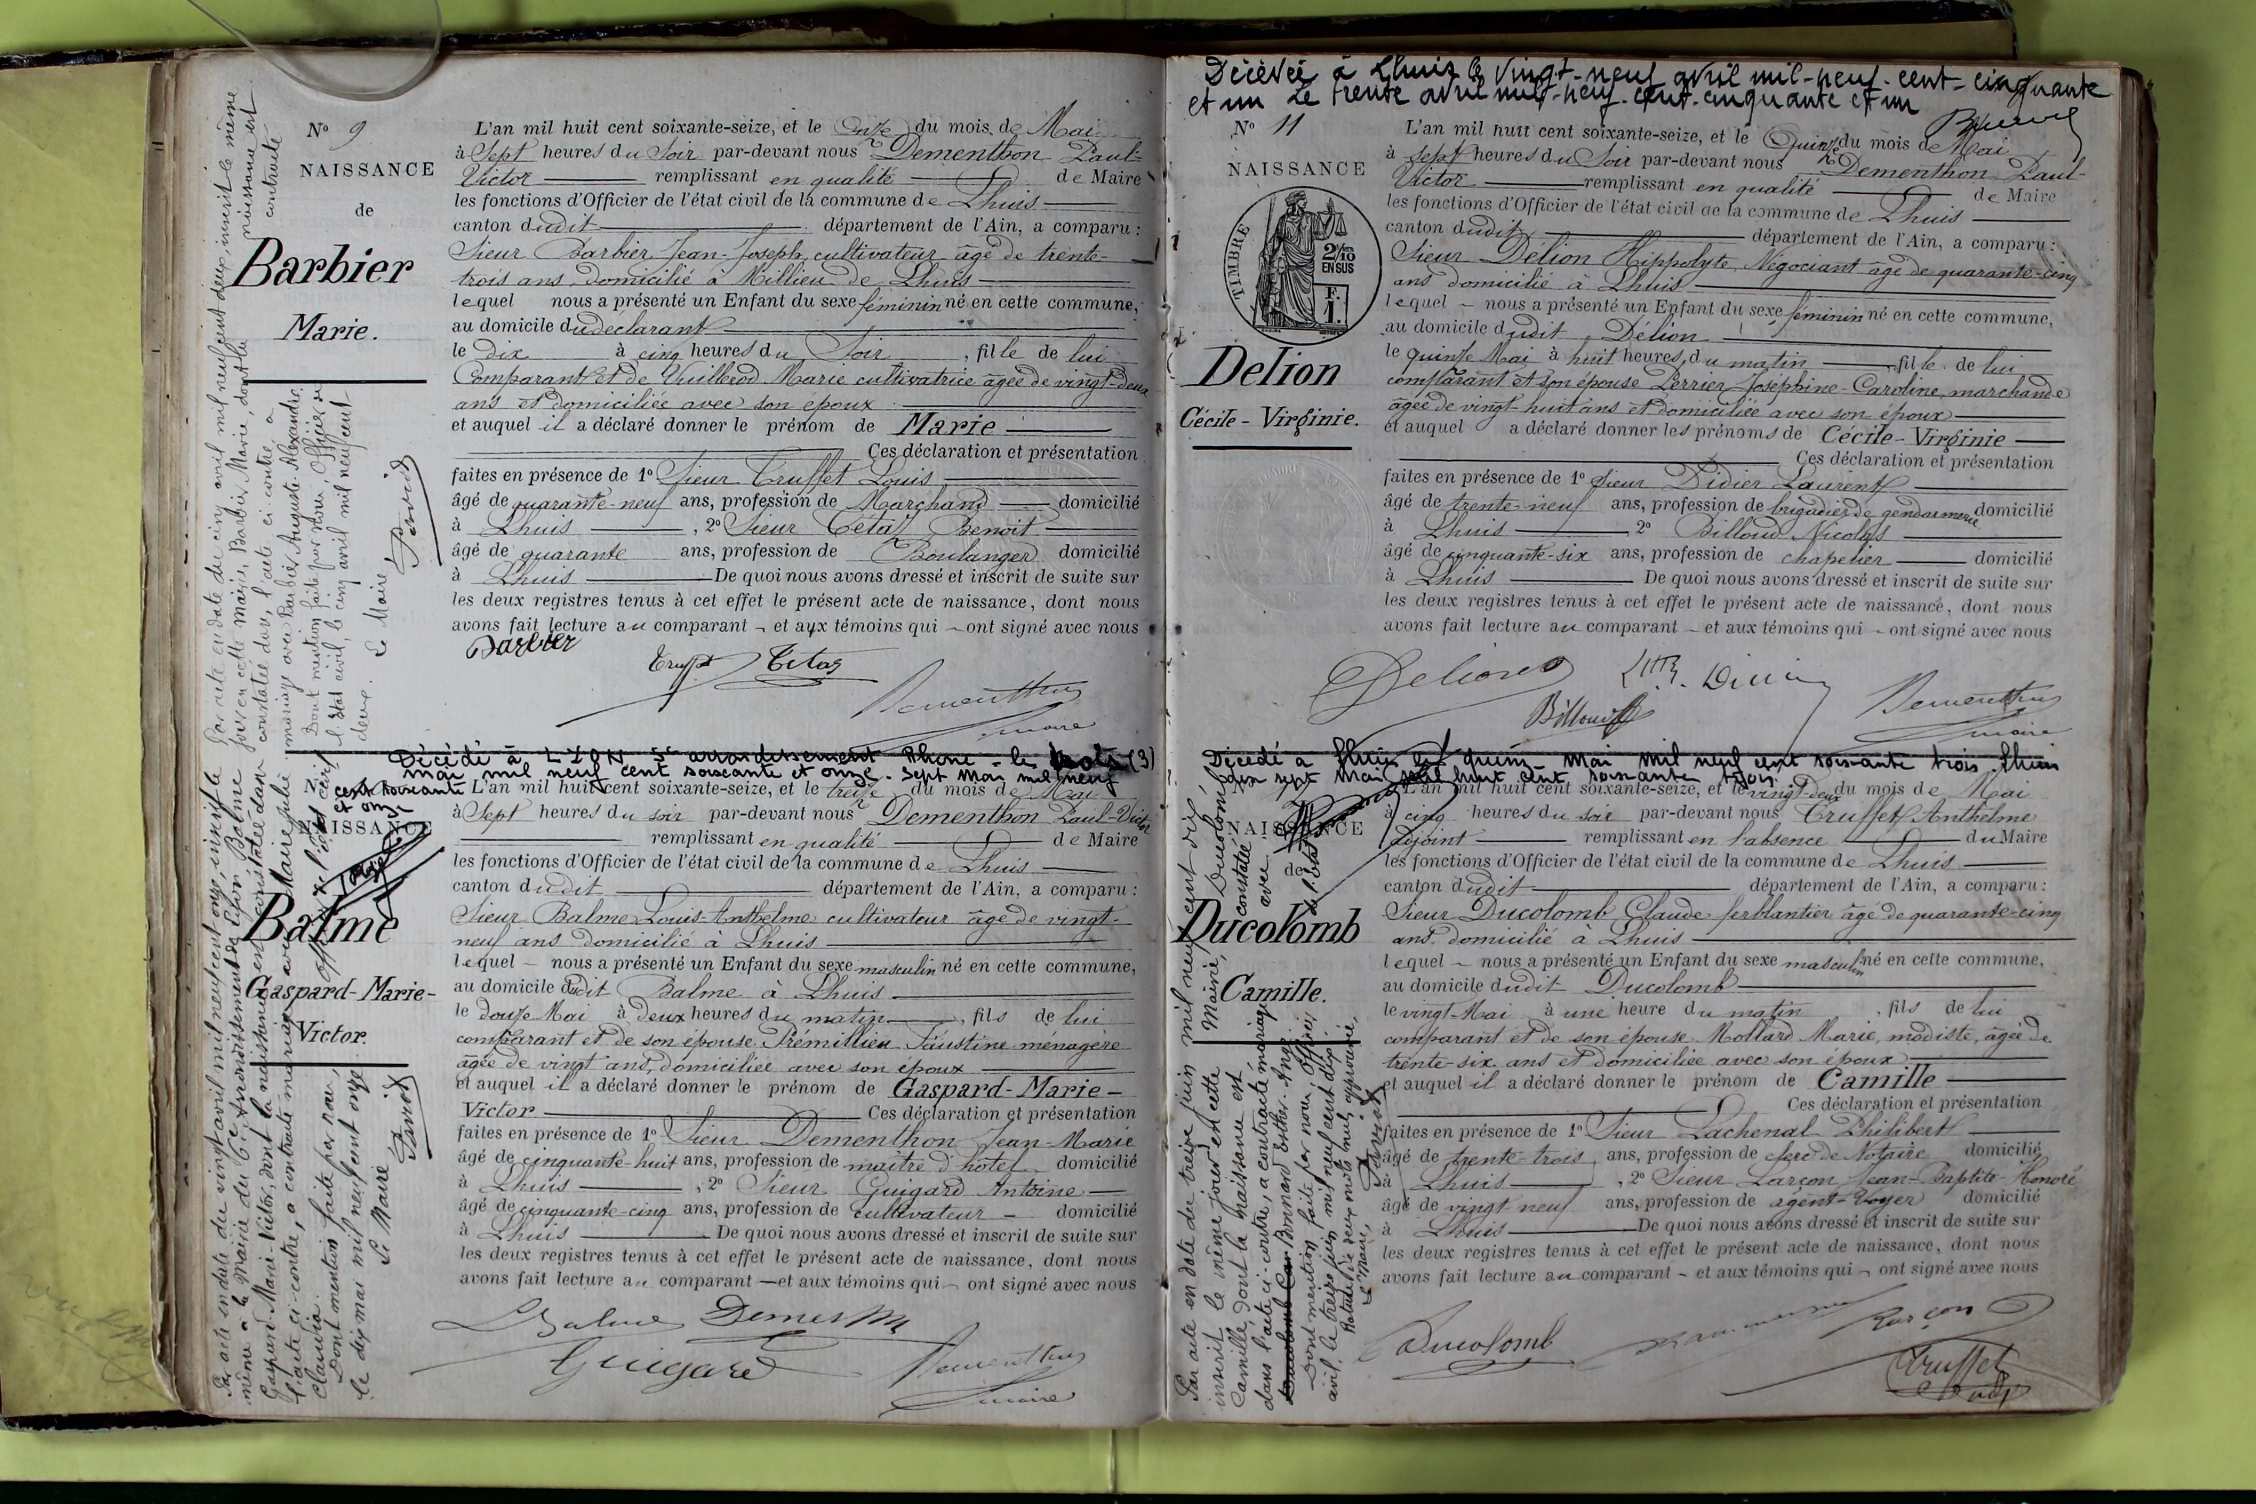 N° 9
NAISSANCE
de
Barbier
Marie.
L'an mil huit cent soixante-seize, et le Onze du mois de Mai
à Sept heures du Soir par-devant nous Dementhon Paul-
Victor remplissant en qualité de Maire
les fonctions d'Officier de l'état civil de la commune de Lhuis
canton dudit département de l'Ain, a comparu :
Sieur Barbier Jean-Joseph, cultivateur âgé de trente-
trois ans, domicilié à Millieu de Lhuis
lequel nous a présenté un Enfant du sexe féminin né en cette commune,
au domicile du déclarant
le dix à cinq heures du Soir, fille de lui
Comparant et de Vuillerod Marie cultivatrice âgée de vingt-deux
ans et domiciliée avec son époux
et auquel il a déclaré donner le prénom de Marie
Ces déclaration et présentation
faites en présence de 1° Sieur Truffet Louis
âgé de quarante-neuf ans, profession de Marchand domicilié
à Lhuis, 2° Sieur Tétaz Benoit
âgé de quarante ans, profession de Boulanger domicilié
à Lhuis De quoi nous avons dressé et inscrit de suite sur
les deux registres tenus à cet effet le présent acte de naissance, dont nous
avons fait lecture au comparant et aux témoins qui ont signé avec nous
Barbier
Tétaz
Dementhon
maire
Par acte en date du cinq avril mil neuf cent deux, inscrit le même
jour en cette mairie, Barbier, Marie, dont la naissance est
constatée dans l'acte ci-contre, a contracté
mariage avec Barbier, Auguste Alexandre.
Dont mention faite par nous, Officier de
l'état civil, le cinq avril mil neuf cent
deux. Le Maire
Décédé à LYON 5e arrondissement Rhône - le trois (3)
mai mil neuf cent soixante et onze. Sept Mai mil neuf
cent soixante
et onze
NAISSANCE
Balme
Gaspard-Marie-
Victor.
L'an mil huit cent soixante-seize, et le treize du mois de Mai
à Sept heures du soir par-devant nous Dementhon Paul-Victor
remplissant en qualité de Maire
les fonctions d'Officier de l'état civil de la commune de Lhuis
canton dudit département de l'Ain, a comparu :
Sieur Balme Louis-Anthelme cultivateur âgé de vingt-
neuf ans domicilié à Lhuis
lequel nous a présenté un Enfant du sexe masculin né en cette commune,
au domicile dudit Balme à Lhuis
le douze Mai à deux heures du matin, fils de lui
comparant et de son épouse Trémillieu Faustine ménagère
âgée de vingt ans, domiciliée avec son époux
et auquel il a déclaré donner le prénom de Gaspard-Marie-
Victor Ces déclaration et présentation
faites en présence de 1° Sieur Dementhon Jean-Marie
âgé de cinquante-huit ans, profession de maître d'hôtel domicilié
à Lhuis, 2° Sieur Guigard Antoine
âgé de cinquante-cinq ans, profession de cultivateur domicilié
à Lhuis De quoi nous avons dressé et inscrit de suite sur
les deux registres tenus à cet effet le présent acte de naissance, dont nous
avons fait lecture au comparant et aux témoins qui ont signé avec nous
Balme
Guigard
Dementhon
maire
Par acte en date du vingt avril mil neuf cent onze, inscrit le
même à la Mairie du 6e Arrondissement de Lyon Balme
Gaspard-Marie-Victor, dont la naissance est constatée dans
l'acte ci-contre, a contracté mariage avec Julie
Claudia.
Dont mention faite par nous,
le dix mai mil neuf cent onze
Le Maire
Décédée à Lhuis le vingt-neuf avril mil-neuf-cent-cinquante
et un Le trente avril mil-neuf-cent-cinquante et un
N° 11
NAISSANCE
TIMBRE
2/10
EN SUS
F.
1.
Delion
Cécile-Virginie.
L'an mil huit cent soixante-seize, et le Quinze du mois de Mai
à sept heures du Soir par-devant nous Dementhon Paul-
Victor remplissant en qualité de Maire
les fonctions d'Officier de l'état civil de la commune de Lhuis
canton dudit département de l'Ain, a comparu :
Sieur Délion Hippolyte, Négociant âgé de quarante-cinq
ans domicilié à Lhuis
lequel nous a présenté un Enfant du sexe féminin né en cette commune,
au domicile dudit Délion
le quinze Mai à huit heures du matin fille de lui
comparant et son épouse Perrier Joséphine-Caroline, marchande
âgée de vingt-huit ans et domiciliée avec son époux
et auquel a déclaré donner les prénoms de Cécile-Virginie
Ces déclaration et présentation
faites en présence de 1° Sieur Didier Laurent
âgé de trente-neuf ans, profession de brigadier de gendarmerie domicilié
à Lhuis 2° Billoud Nicolas
âgé de cinquante-six ans, profession de chapelier domicilié
à Lhuis De quoi nous avons dressé et inscrit de suite sur
les deux registres tenus à cet effet le présent acte de naissance, dont nous
avons fait lecture au comparant et aux témoins qui ont signé avec nous
Delion
Billoud
Dementhon
maire
Décédé à Lhuis le quinze Mai mil neuf cent soixante trois Lhuis
dix sept Mai mil neuf cent soixante trois.
NAISSANCE
de
Ducolomb
Camille.
L'an mil huit cent soixante-seize, et le vingt-deux du mois de Mai
à cinq heures du soir par-devant nous Truffet Anthelme
Adjoint remplissant en l'absence du Maire
les fonctions d'Officier de l'état civil de la commune de Lhuis
canton dudit département de l'Ain, a comparu :
Sieur Ducolomb Claude ferblantier âgé de quarante-cinq
ans domicilié à Lhuis
lequel nous a présenté un Enfant du sexe masculin né en cette commune,
au domicile dudit Ducolomb
le vingt Mai à une heure du matin, fils de lui
comparant et de son épouse Mollard Marie, modiste, âgée de
trente-six ans et domiciliée avec son époux
et auquel il a déclaré donner le prénom de Camille
Ces déclaration et présentation
faites en présence de 1° Sieur Lachenal Philibert
âgé de trente-trois ans, profession de clerc de Notaire domicilié
à Lhuis, 2° Sieur Larçon Jean-Baptite-Honoré
âgé de vingt neuf ans, profession de agent-Voyer domicilié
à Lhuis De quoi nous avons dressé et inscrit de suite sur
les deux registres tenus à cet effet le présent acte de naissance, dont nous
avons fait lecture au comparant et aux témoins qui ont signé avec nous
Ducolomb
Larçon
Truffet
adj
Par acte en date du treize juin mil neuf cent dix,
inscrit le même jour en cette Mairie, Ducolomb
Camille, dont la naissance est constatée
dans l'acte ci-contre, a contracté mariage avec
Bonnand Esther-Angé
Dont mention faite par nous, Officier de l'état
civil, le treize juin mil neuf cent dix
Rature de deux mots nuls, approuvée,
Le Maire,